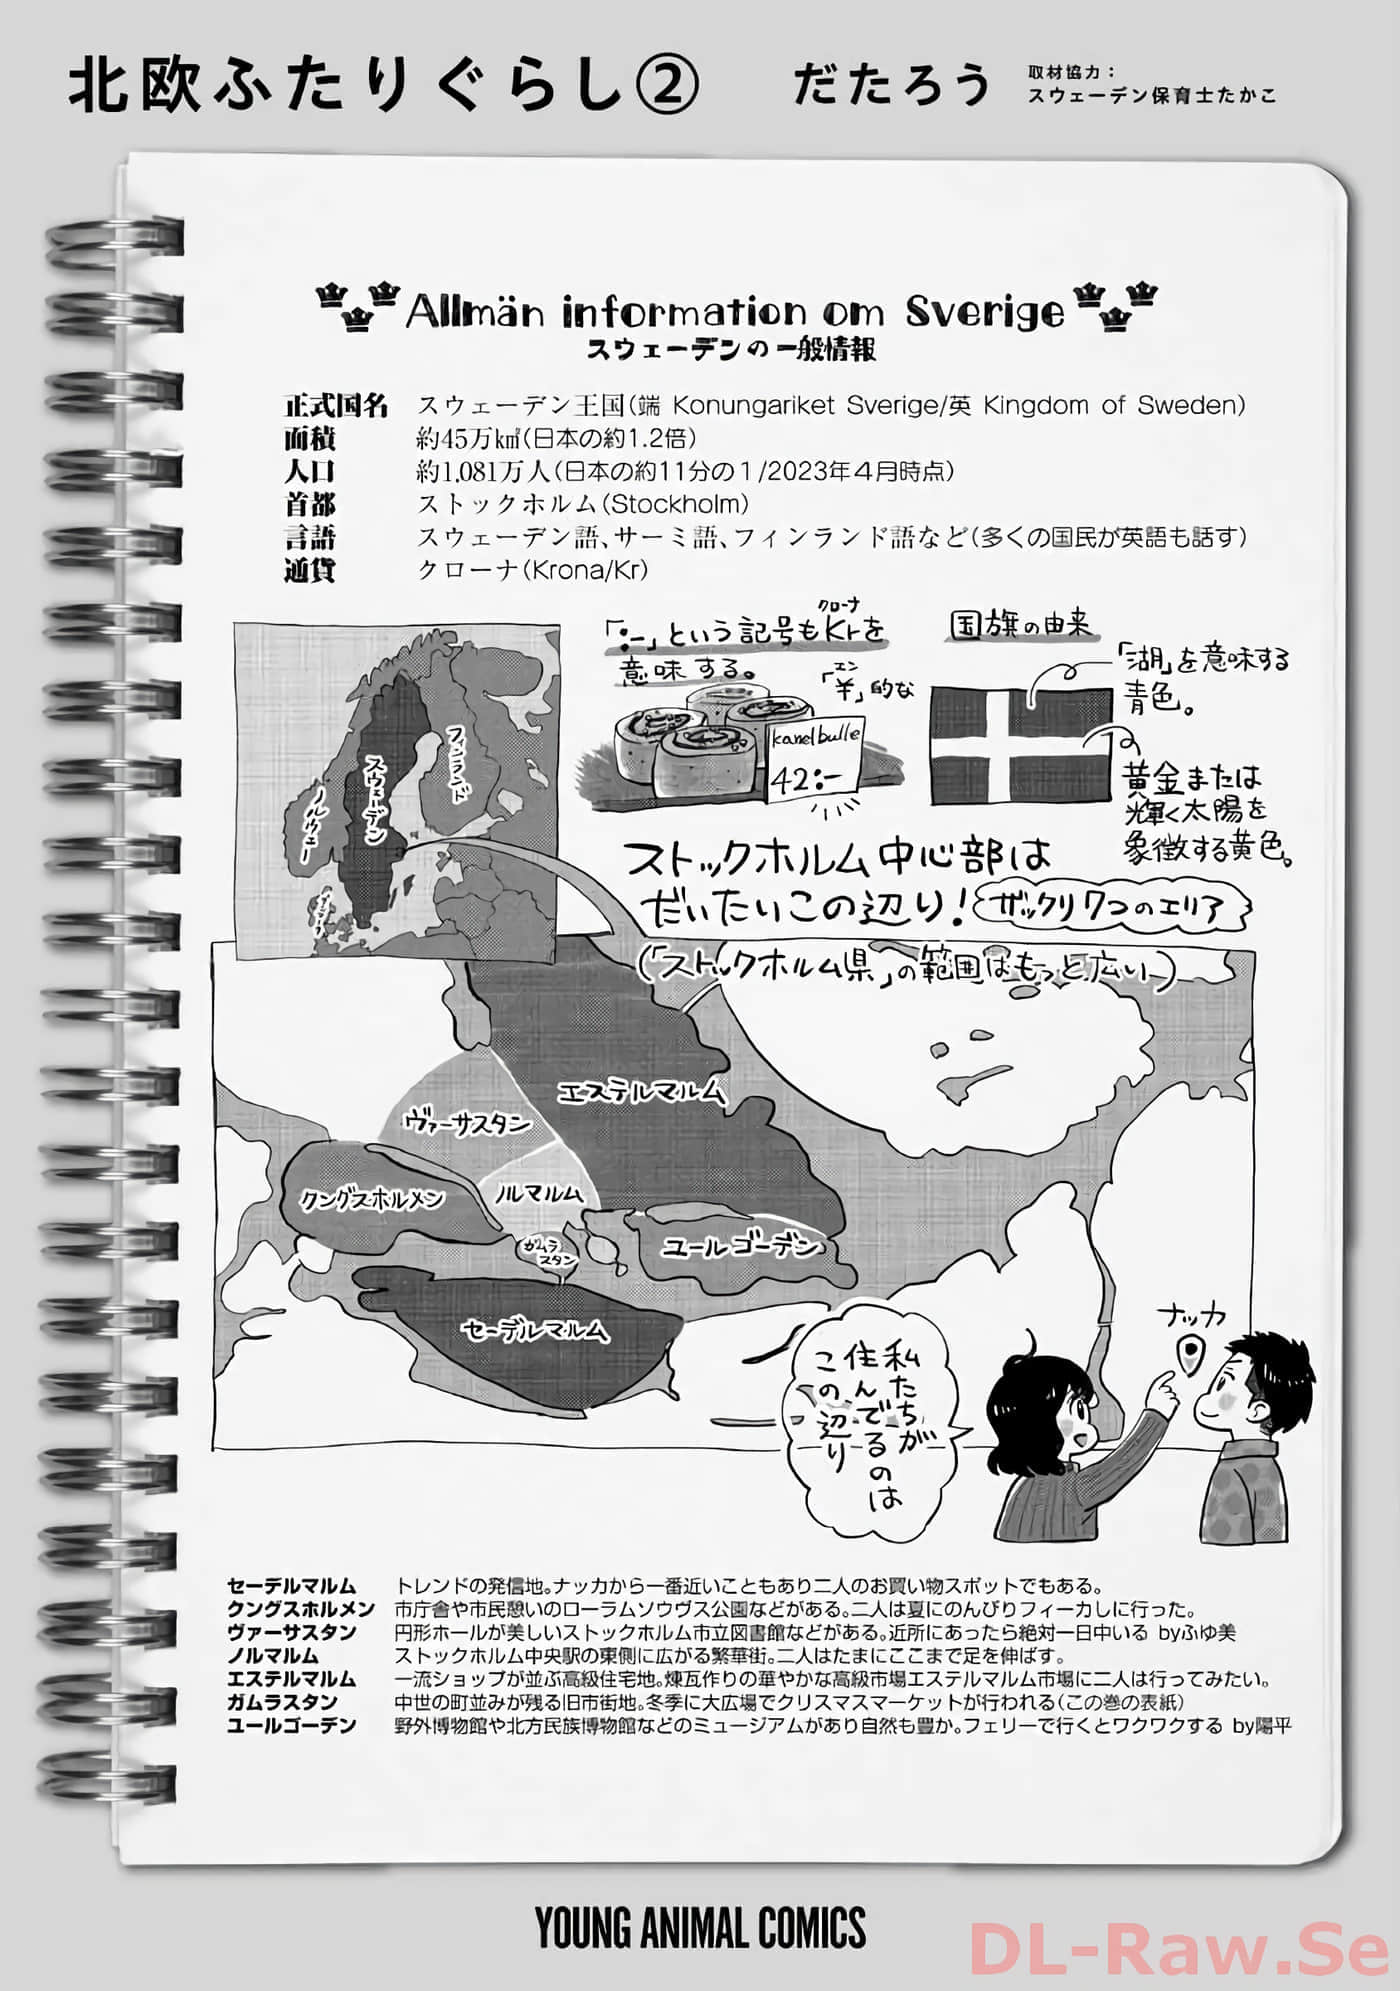 北欧ふたりぐらし②
だたろう
取材協力：
スウェーデン保育士たかこ
Allmän information om Sverige
スウェーデンの一般情報
正式国名 スウェーデン王国(端 Konungariket Sverige/英 Kingdom of Sweden)
面積 約45万㎢(日本の約1.2倍)
人口 約1,081万人(日本の約11分の1/2023年4月時点)
首都 ストックホルム(Stockholm)
言語 スウェーデン語、サーミ語、フィンランド語など(多くの国民が英語も話す)
通貨 クローナ(Krona/Kr)
フィンランド
スウェーデン
ノルウェー
クローナ
「:-」という記号もKrを
意味する。
エン
「¥」的な
kanelbulle
42:-
国旗の由来
「湖」を意味する
青色。
黄金または
輝く太陽を
象徴する黄色。
ストックホルム中心部は
だいたいこの辺り!
ザックリ7つのエリア
(「ストックホルム県」の範囲はもっと広い)
エステルマルム
ヴァーサスタン
クングスホルメン
ノルマルム
ガムラ
スタン
ユールゴーデン
セーデルマルム
私たちが
住んでるのは
この辺り
ナッカ
セーデルマルム トレンドの発信地。ナッカから一番近いこともあり二人のお買い物スポットでもある。
クングスホルメン 市庁舎や市民憩いのローラムソウヴス公園などがある。二人は夏にのんびりフィーカしに行った。
ヴァーサスタン 円形ホールが美しいストックホルム市立図書館などがある。近所にあったら絶対一日中いる byふゆ美
ノルマルム ストックホルム中央駅の東側に広がる繁華街。二人はたまにここまで足を伸ばす。
エステルマルム 一流ショップが並ぶ高級住宅地。煉瓦作りの華やかな高級市場エステルマルム市場に二人は行ってみたい。
ガムラスタン 中世の町並みが残る旧市街地。冬季に大広場でクリスマスマーケットが行われる(この巻の表紙)
ユールゴーデン 野外博物館や北方民族博物館などのミュージアムがあり自然も豊か。フェリーで行くとワクワクする by陽平
YOUNG ANIMAL COMICS
DL-Raw.Se